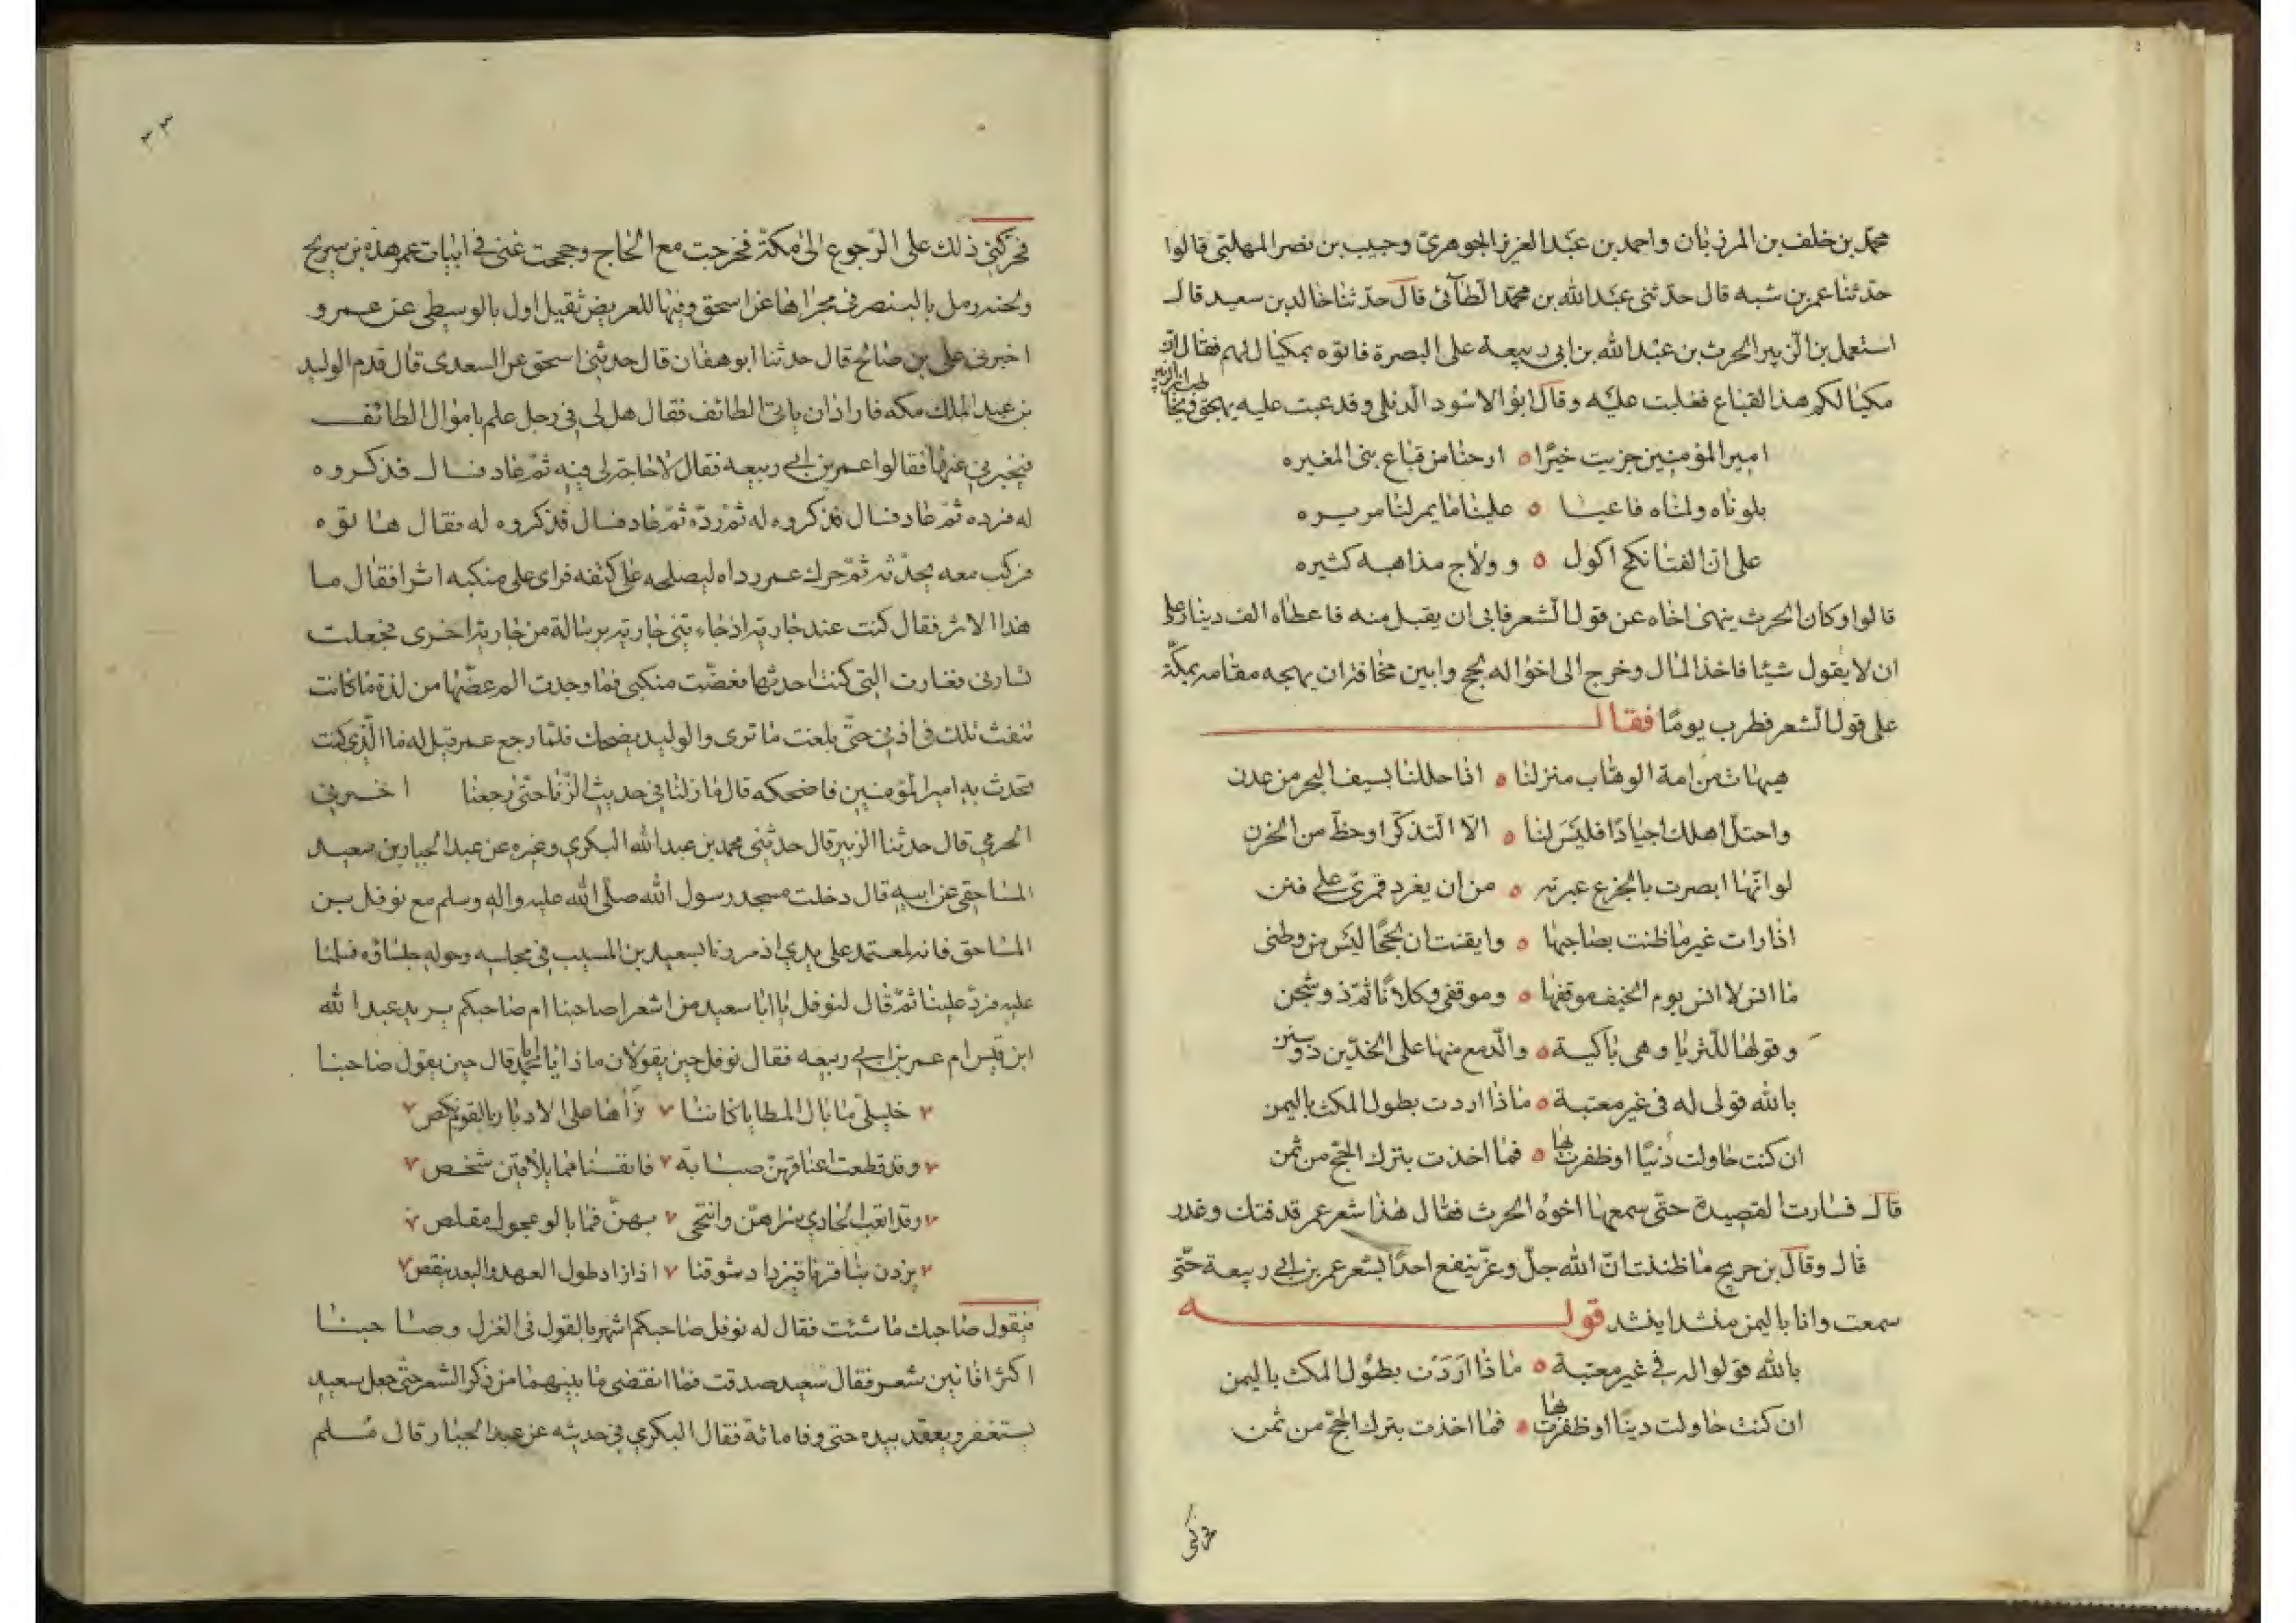 محمد بن خلف بن المرزبان واحمد بن عبد العزيز الجوهريّ وحبيب بن نصر المهلبّي قالوا
حدثنا عمر بن شبه قال حدثنى عبد الله بن محمّد الطآئىّ قال حدّثنا خالد بن سعيد قال
استعمل بن الزّبير الحرث بن عبد الله بن ابى ربيعة على البصرة فاتوه بمكيال لهم فقال ان
مكيالكم هذا لقباع فغلبت عليه وقال ابو الاسود الدئلى وقد عبت عليه يهجوه
امير المؤمنين جزيت خيرًا ٥ ارحنا من قباع بنى المغيره
بلوناه ولمناه فاعيـا ٥ علينا ما يمر لنا مريره
على ان الفتا نكح اكول ٥ وولاج مذاهبه كثيره
قالوا وكان الحرث ينهى اخاه عن قول الشعر فابى ان يقبل منه فاعطاه الف دينار على
ان لا يقول شيئا فاخذ المال وخرج الى اخواله بحج وابين مخافة ان يهيجه مقامه بمكّة
على قول الشعر فطرب يومًا فقال
هيهات من امة الوهاب منزلنا ٥ اذا حللنا بسيف البحر من عدن
واحتلّ اهلك اجيادًا فليسَ لنا ٥ الّا التذكّر او حظّ من الحزن
لو انّها ابصرت بالجزع عبرته ٥ من ان يغرد قمرىّ على فنن
اذا رات غير ما ظنت بصاحبها ٥ وايقنت ان لحجًا ليسَ من وطنى
ما انس لا انس يوم الخيف موقفها ٥ وموقفى وكلانا ثمّ ذو شجن
وقولها للثريا وهى باكية ٥ والدّمع منها على الخدّين ذو سنن
بالله قولى له فى غير معتبة ٥ ماذا اردت بطول المكث باليمن
ان كنت حاولت دنيًا او ظفرت بها ٥ فما اخذت بترك الحجّ من ثمن
قال فسارت القصيدة حتّى سمعها اخوه الحرث فقال هذا شعر عمر قد فتك وغدر
قال وقال بن جريج ما ظننت انّ الله جلّ وعزّ ينفع احدًا بشعر عمر بن ابي ربيعة حتّى
سمعت وانا باليمن منشدا ينشد قوله
بالله قولوا له في غير معتبة ٥ ماذا اَرَدَت بطول المكث باليمن
ان كنت حاولت دينًا او ظفرت بها ٥ فما اخذت بترك الحجّ من ثمن
حركنى
٣٣
فحركنى ذلك على الرّجوع الى مكّة فخرجت مع الحاج وحججت غنى فى ابيات عمر هذه بن سريج
ولحنه رمل بالبنصر فى مجراها عن اسحق وفيها للعريض ثقيل اول بالوسطى عن عمرو
اخبرنى على بن صالح قال حدثنا ابو هفان قال حدثنى اسحق عن السعدى قال قدم الوليد
بن عبد الملك مكه فاراد ان ياتى الطائف فقال هل لى فى رجل علم باموال الطائف
فيخبرنى عنها فقالوا عمر بن ابي ربيعه فقال لا حاجة لى فيه ثمّ عاد فسال فذكروه
له فرده ثمّ عاد فسال فذكروه له ثمّ ردّه ثمّ عاد فسال فذكروه له فقال هاتوه
فركب معه يحدّثه ثمّ حرك عمر رداه ليصلحه على كتفه فراى على منكبه اثرا فقال ما
هذا الاثر فقال كنت عند جارية اذ جاءتنى جارية برسالة من جارية اخرى فجعلت
تسارنى فغارت التى كنت احدثها فعضّت منكبى فما وجدت الم عضّها من لذة ما كانت
تنفث تلك فى اذنى حتّى بلغت ما ترى والوليد يضحك فلمّا رجع عمر قيل له ما الّذى كنت
تحدث به امير المؤمنين فاضحكه قال ما زلنا فى حديث الزّنا حتّى رجعنا اخبرنى
الحرمي قال حدثنا الزبير قال حدثنى محمد بن عبد الله البكري وغيره عن عبد الجبار بن سعيد
المساحقى عن ابيه قال دخلت مسجد رسول الله صلّى الله عليه واله وسلم مع نوفل بن
المساحق فانه لمعتمد على يدي اذ مررنا بسعيد بن المسيب فى مجلسه وحوله جلساؤه فسلمنا
عليه فردّ علينا ثمّ قال لنوفل يا ابا سعيد من اشعر اصاحبنا ام صاحبكم يريد عبد الله
ابن قيس ام عمر بن ابي ربيعه فقال نوفل حين يقولان ماذا يا ابا محمد قال حين يقول صاحبنا
خليلىّ ما بال المطايا كاننا ٧ نراها على الادبار بالقوم تنكص
وقد قطعت اعناقهنّ صبابة ٧ فانفسنا مما يلاقين شخص
وقد اتعب الحادي سراهنّ وانتحى ٧ بهنّ فما يالو عجول مقلص
يزدن بنا قربا فيزداد شوقنا ٧ اذا زاد طول العهد والبعد ينقص
فيقول صاحبك ما شئت فقال له نوفل صاحبكم اشهر بالقول فى الغزل وصاحبنا
اكثر افانين شعر فقال سعيد صدقت فما انقضى ما بينهما من ذكر الشعر حتّى جعل سعيد
يستغفر ويعقد بيده حتى وفا مائة فقال البكري فى حديثه عن عبد الجبار قال مُسلم